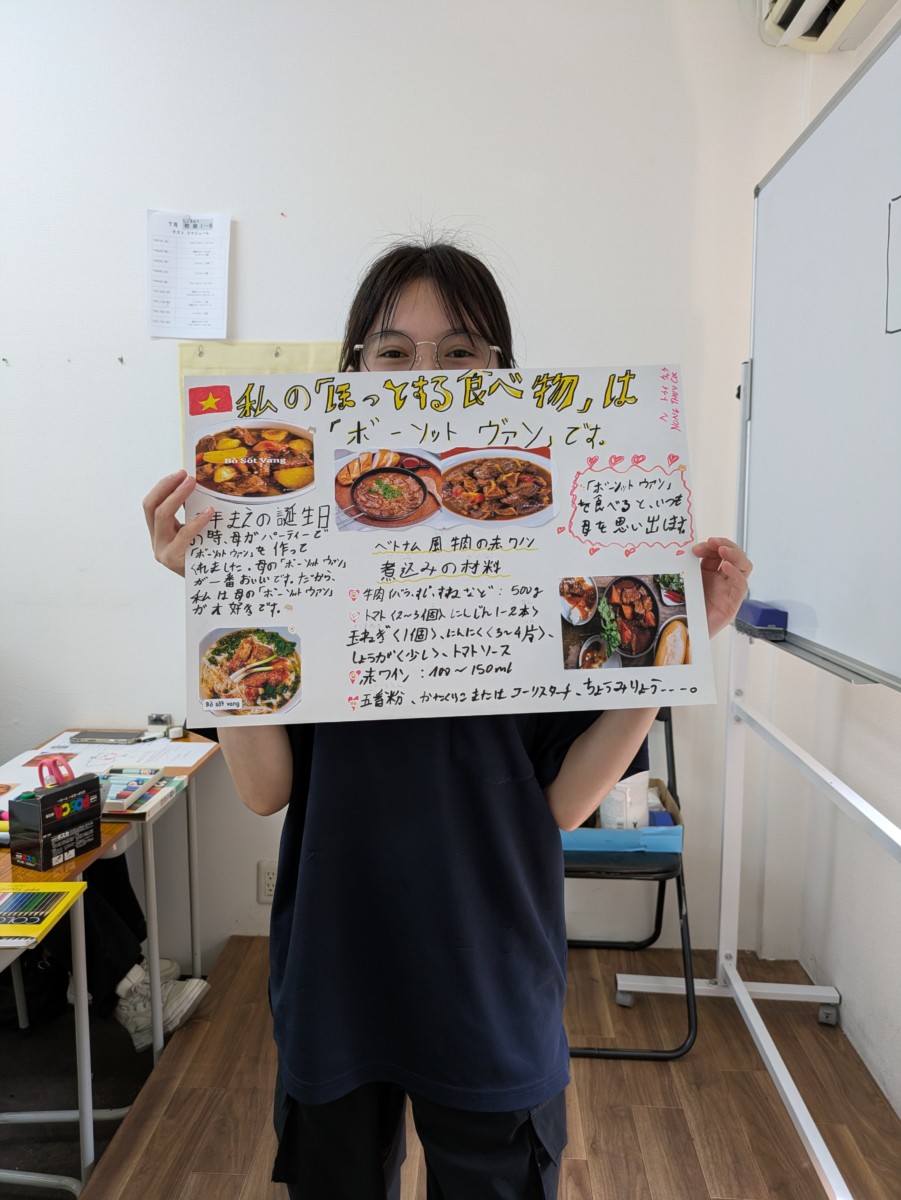 私の「ほっとする食べ物」は
「ボーソット ヴァン」です。
Bò Sốt Vang
年まえの誕生日
の時、母がパーティーで
「ボーソットヴァン」を作って
くれました。母の「ボーソットヴァン」
が一番おいしいです。だから、
私は母の「ボーソットヴァン」
が大好きです。
Bò sốt vang
ベトナム風牛肉の赤ワイン
煮込みの材料
牛肉(バラ、すね など): 500g
トマト〈2〜3個〉、にんじん〈1-2本〉
玉ねぎ〈1個〉、にんにく〈3〜4片〉、
しょうが〈少し〉、トマトソース
赤ワイン:100〜150ml
五香粉、かたくりこまたは コーンスターチ、ちょうみりょう----。
「ボーソットヴァン」
を食べると、いつも
母を思い出します
POSCA